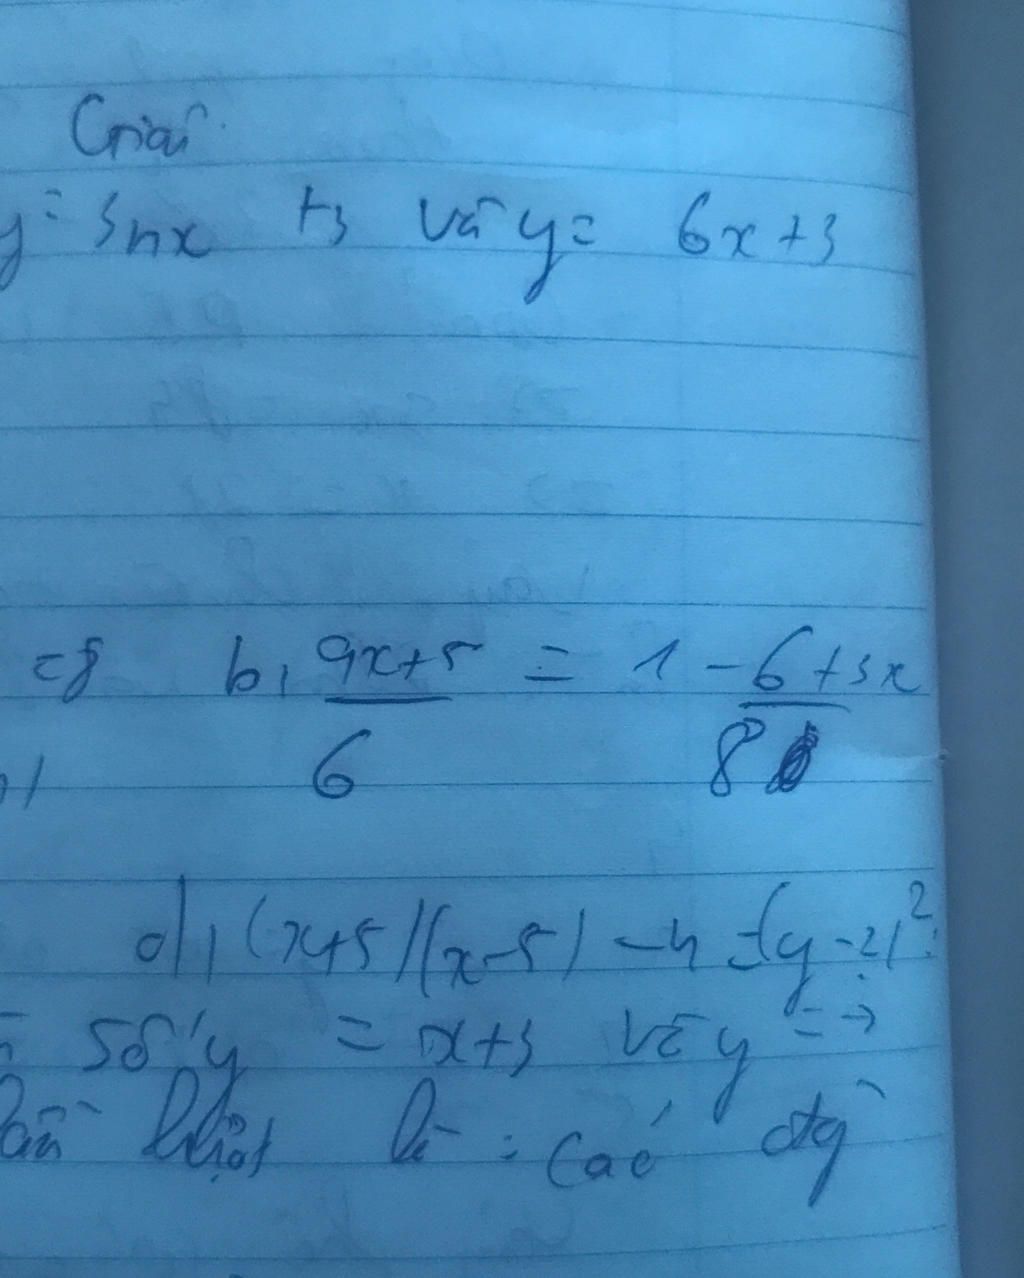 Giải
y = 3nx +3 và y = 6x+3
=8 b, 9x+5/6 = 1 - 6+3x/8
d, (x+5)(x-5) -4 = (y-2)²
số y = x+3 và y =
là : Các